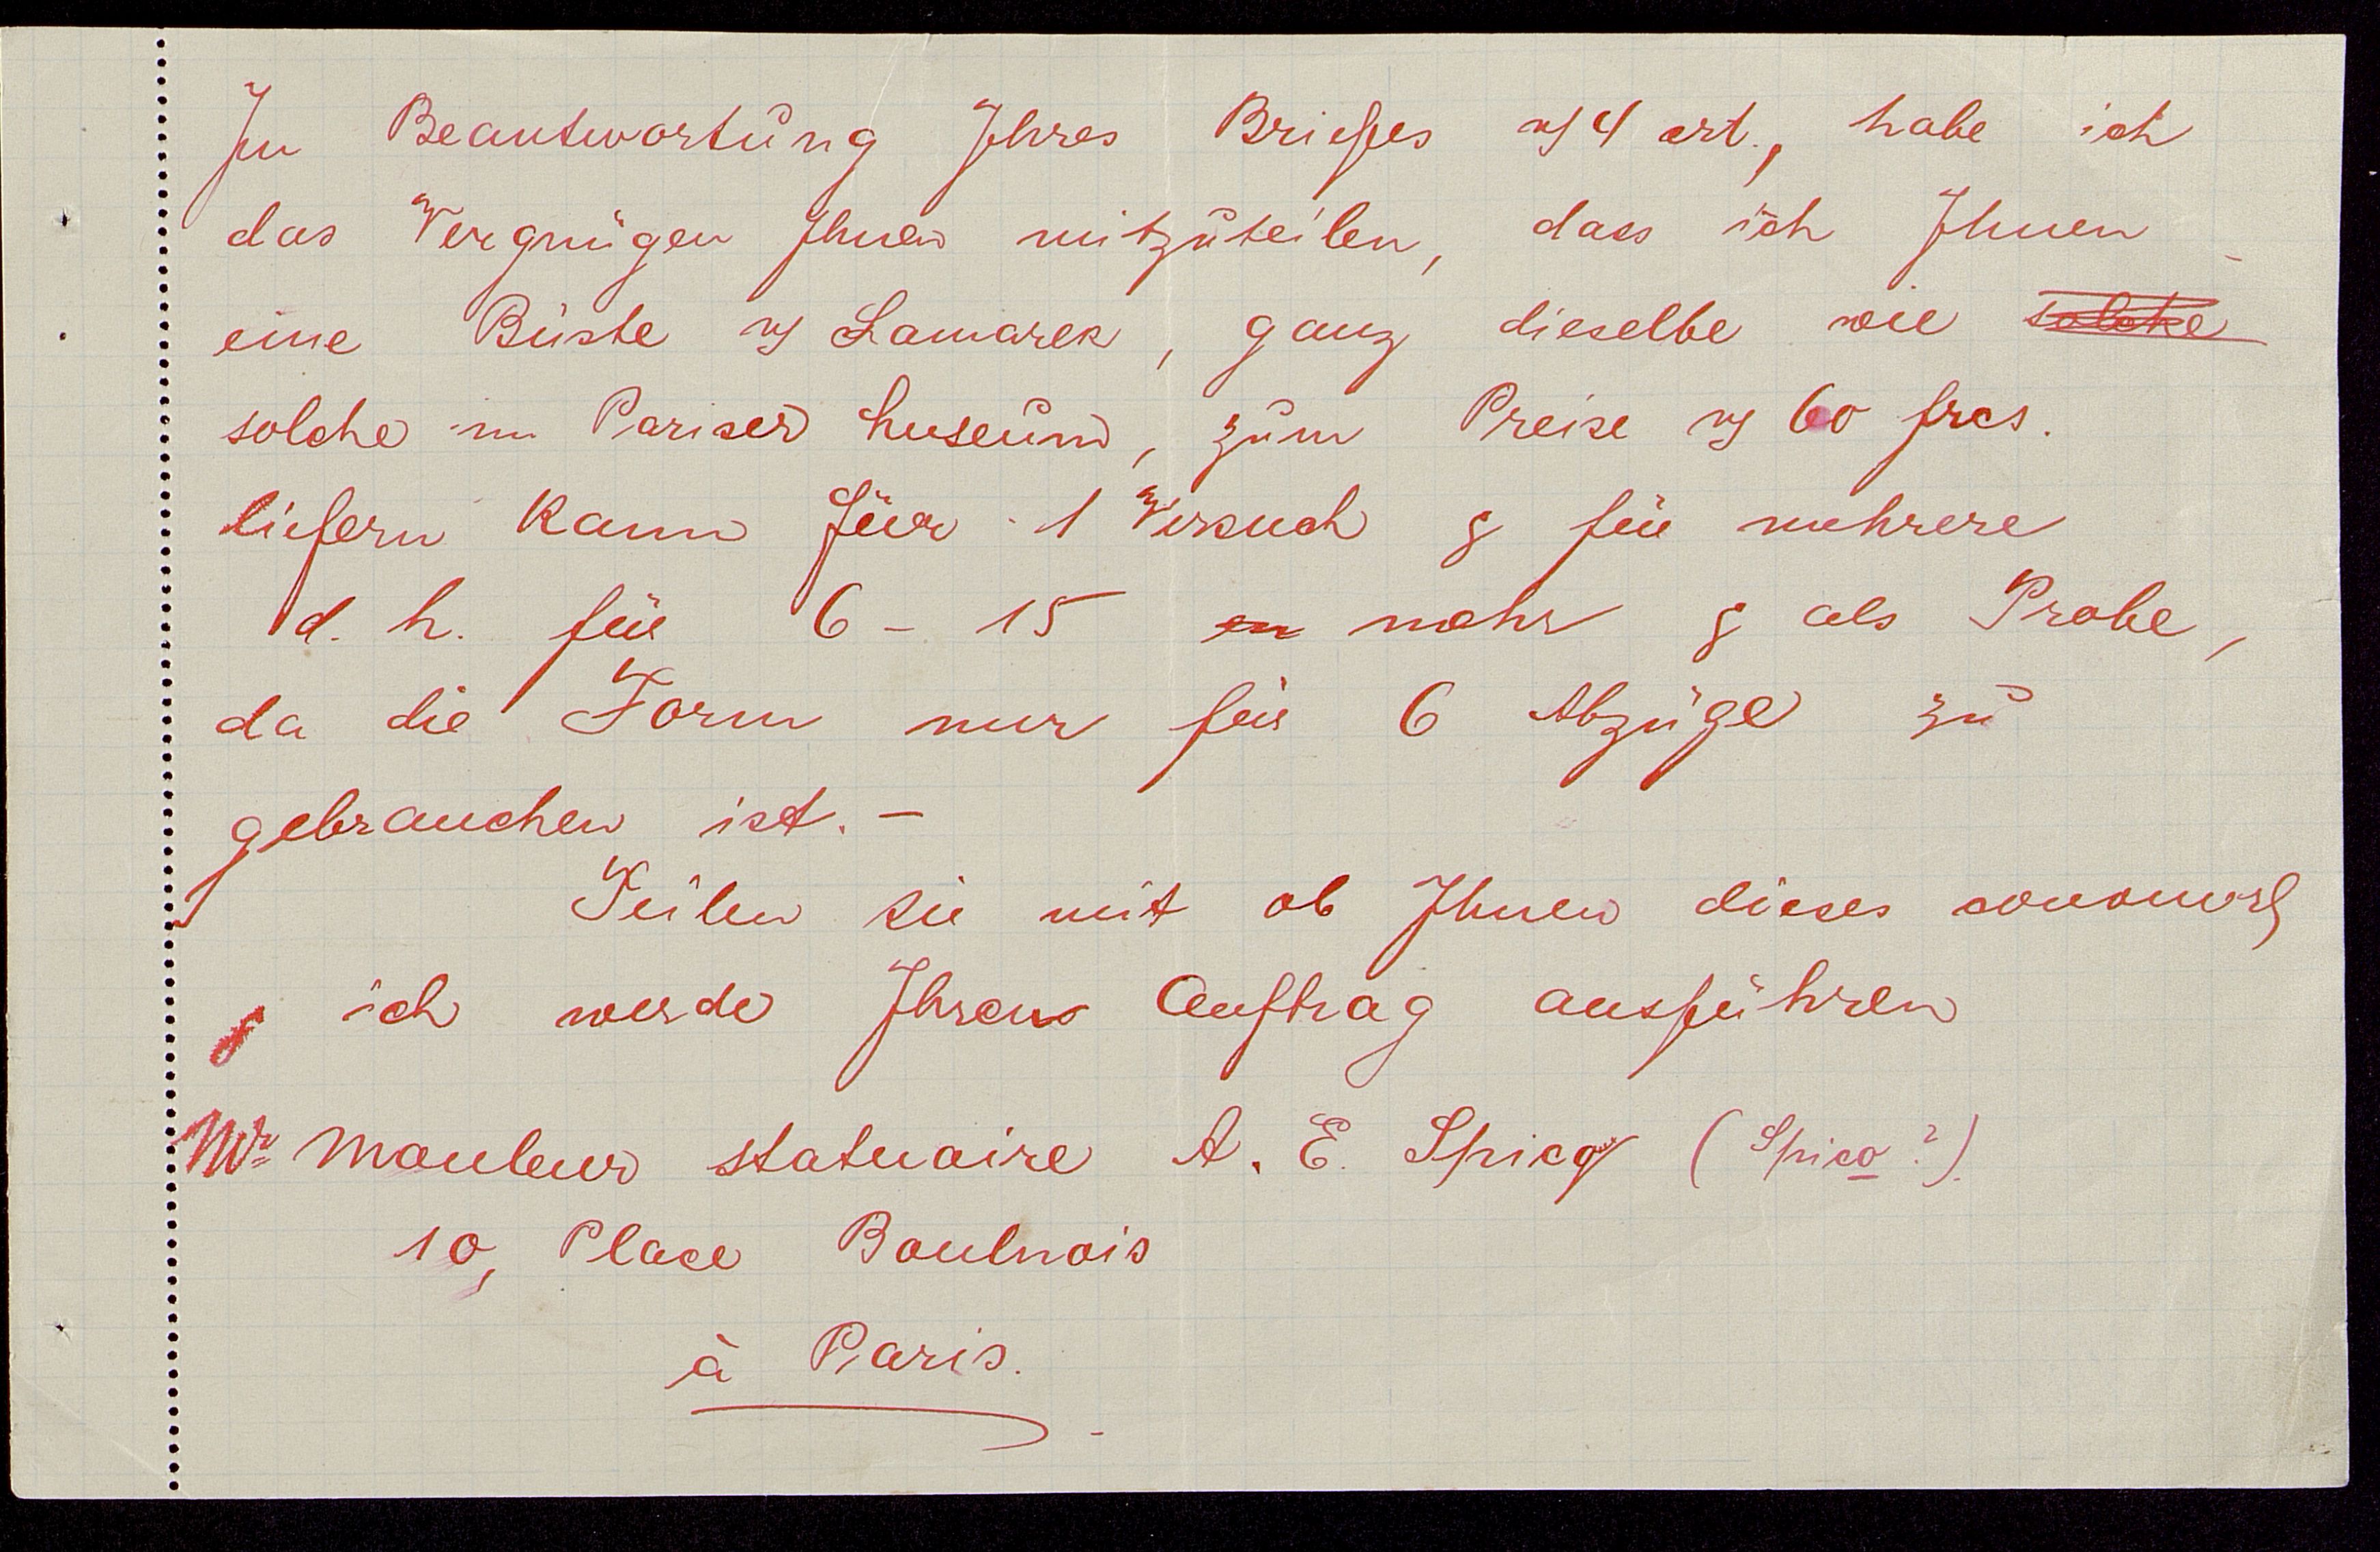 In Beantwortung Ihres Briefes v/ 4 crt., habe ich
das Vergnügen Ihnen mitzuteilen, dass ich Ihnen
eine Büste v/ Lamarck, ganz dieselbe wie solche
solche im Pariser Museum, zum Preise v/ 60 frcs.
liefern kann für 1 Versuch & für mehrere
d. h. für 6 – 15 mehr & als Probe,
da die Form nur für 6 Abzüge zu
gebrauchen ist. –
Teilen Sie mit ob Ihnen dieses
& ich werde Ihren Auftrag ausführen
Mr Mouleur statuaire A. E. Spicq (Spico?).
10, Place Boulnois
à Paris.